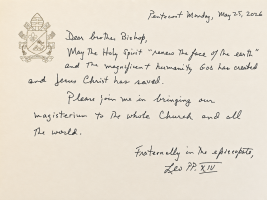 Pentecost Monday, May 25, 2026
Dear brother Bishop,
May the Holy Spirit "renew the face of the earth"
and the magnificent humanity God has created
and Jesus Christ has saved.
Please join me in bringing our
magisterium to the whole Church and all
the world.
Fraternally in the episcopate,
Leo PP. XIV